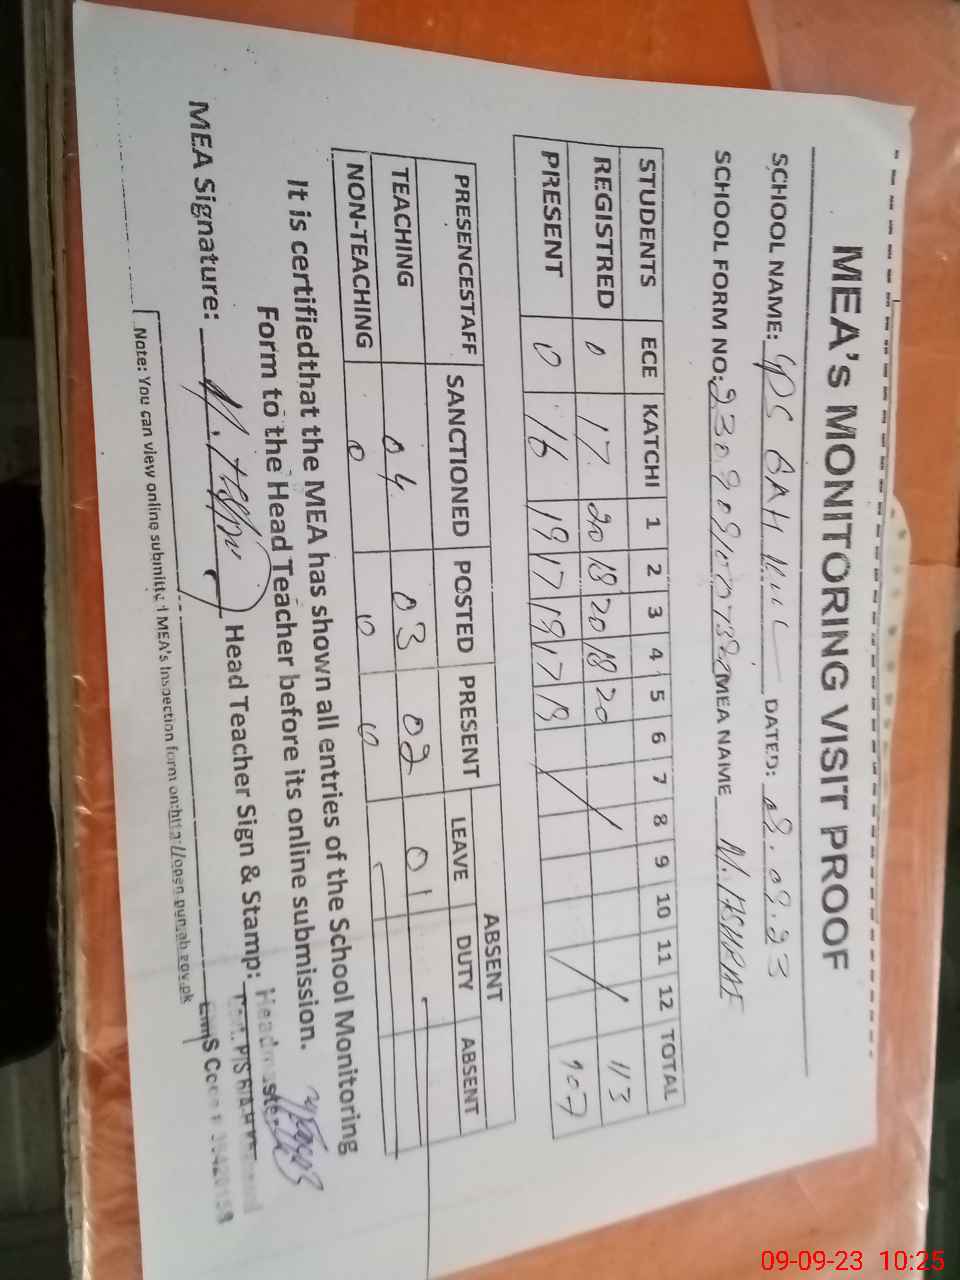 MEA's MONITORING VISIT PROOF
SCHOOL NAME: GPS BAH DATED: 09.09.23
SCHOOL FORM NO: MEA NAME M. ASHRAF
STUDENTS ECE KATCHI 1 2 3 4 5 6 7 8 9 10 11 12 TOTAL
REGISTRED 0 17 20 18 20 18 20 113
PRESENT 0 16 19 17 19 17 19 107
PRESENCESTAFF SANCTIONED POSTED PRESENT ABSENT
LEAVE DUTY ABSENT
TEACHING 04 03 02 01
NON-TEACHING 0 0 0
It is certifiedthat the MEA has shown all entries of the School Monitoring
Form to the Head Teacher before its online submission.
MEA Signature: Head Teacher Sign & Stamp: Headmaster
Note: You can view online submitted MEA's Inspection form on:http://open.punjab.gov.pk
09-09-23 10:25